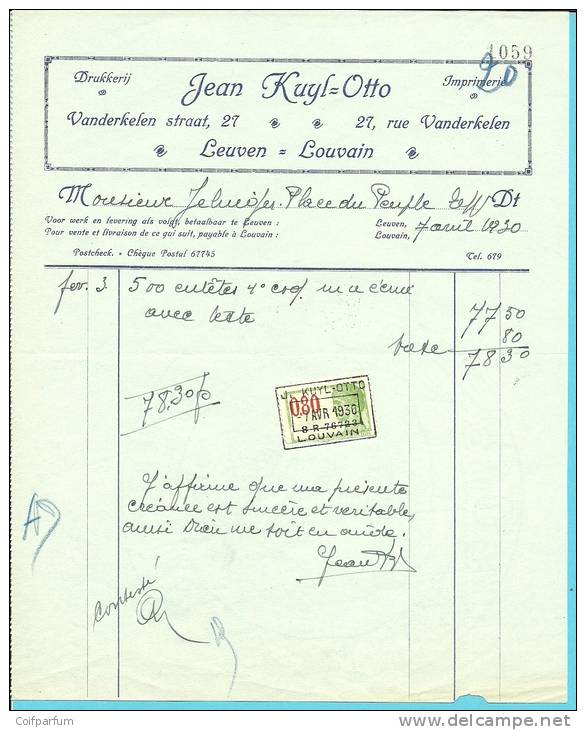 1059
20
Drukkerij Jean Kuyl=Otto Imprimerie
Vanderkelen straat, 27 27, rue Vanderkelen
Leuven = Louvain
Monsieur Place du Peuple Dt
Voor werk en levering als volgt, betaalbaar te Leuven : Leuven,
Pour vente et livraison de ce qui suit, payable à Louvain : Louvain, 7 avril 1930
Postcheck. - Chèque Postal 67745 Tel. 679
fev. 3. 500 entêtes 4°
avec texte 77 50
taxe 80
78 30
78.30 f
J. KUYL-OTTO
0.80
-7 AVR 1930
8-R-76723
LOUVAIN
J'affirme que ma présente
créance est sincère et veritable,
ainsi Dieu me soit en aide.
Jean
contesté
Coifparfum
www.delcampe.net